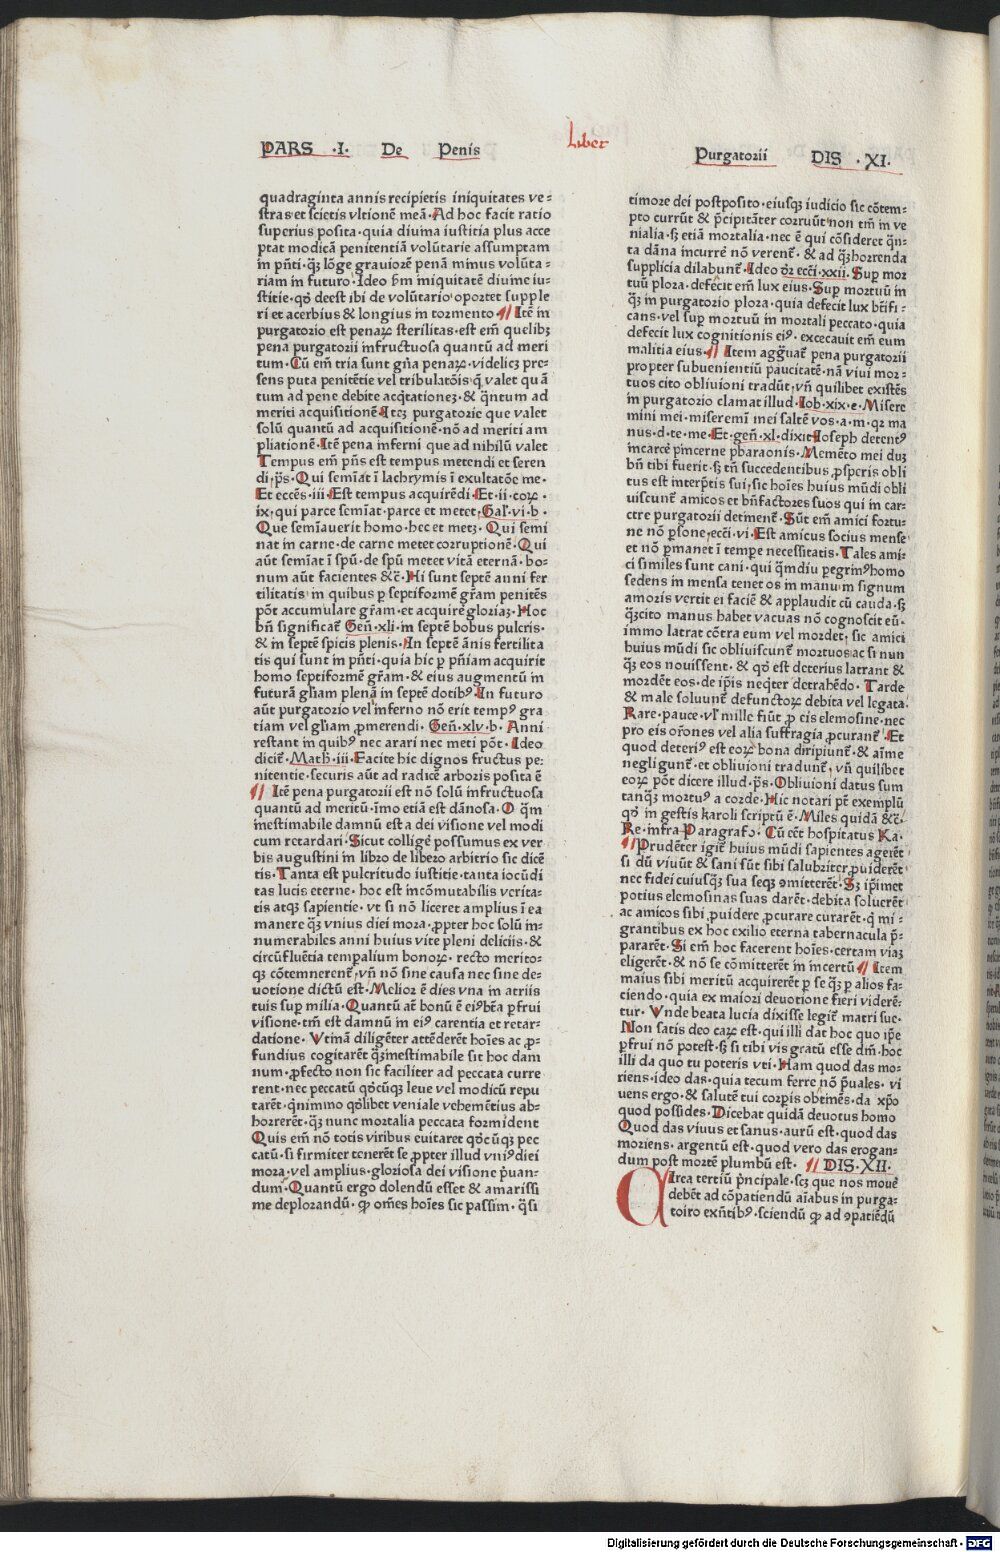 PARS ·I· De Penis
Liber
Purgatorii DIS ·XI·
quadraginta annis recipietis iniquitates ve=
stras et scietis vltionē meā·Ad hoc facit ratio
superius posita·quia diuina iusticia plus acce
ptat modicā penitentiā volūtarie assumptam
in pn̄ti·q̄ȝ lōge grauiorē penā minus volūta=
riam in futuro·Ideo ſm iniquitatē diuine iu=
stitie·qd̕ deest ibi de volūtario oportet supple
ri et acerbius & longius in tormento·¶ Itē in
purgatorio est penaꝝ sterilitas·est em̄ quelibȝ
pena purgatorii infructuosa quantū ad meri
tum·Cū em̄ tria sunt gn̄a penaꝝ·videlicȝ pre=
sens puta penitētie vel tribulatōis q̄ valet quā
tum ad pene debite acq̄tationeȝ·& q̄ntum ad
meriti acquisitionē Iteȝ purgatorie que valet
solū quantū ad acquisitionē·nō ad meriti am
pliationē·Itē pena inferni que ad nihilū valet
Tempus em̄ pn̄s est tempus metendi et seren
di,ps̄·Qui semīat ī lachrymis ī exultatōe me·
Et ecces·iii·Est tempus acquirēdi·Et·ii·coꝝ·
ix,qui parce semīat·parce et metet,Gal̕·vi·b·
Que semīauerit homo·hec et metȝ·Qui semi
nat in carne·de carne metet corruptionē·Qui
aūt semīat ī spū·de spū metet vitā eternā·bo=
num aūt facientes &c̄·Hi sunt septē anni fer
tilitatis in quibus ꝑ septiformē gr̄am penitēs
pōt accumulare gr̄am·et acquirē gloriaȝ·Hoc
bn̄ significat̄ Gen̄·xli·in septē bobus pulcris·
& in septē spicis plenis·In septē ānis fertilita
tis qui sunt in pn̄ti·quia hic ꝑ pn̄iam acquirit
homo septiformē gr̄am·& eius augmentū in
futurā gl̄iam plenā in septē dotibꝰ·In futuro
aūt purgatorio vel inferno nō erit tempꝰ gra
tiam vel gl̄iam ꝓmerendi·Gen̄·xlv·b·Anni
restant in quibꝰ nec arari nec meti pōt·Ideo
dicit̄·Math·iii·Facite hic dignos fructus pe=
nitentie·securis aūt ad radicē arboris posita ē
¶ Itē pena purgatorii est nō solū infructuosa
quantū ad meritū·imo etiā est dānosa·O q̄m
inestimabile damnū est a dei visione vel modi
cum retardari·Sicut colligē possumus ex ver
bis augustini in libro de libero arbitrio sic dicē
tis·Tanta est pulcritudo iustitie·tanta iocūdi
tas lucis eterne·hoc est incōmutabilis verita=
tis atqȝ sapientie·vt si nō liceret amplius ī ea
manere q̄ȝ vnius diei mora·ꝓpter hoc solū in=
numerabiles anni huius vite pleni deliciis·&
circūfluētia temꝑalium bonoꝝ·recto merito=
qȝ cōtemnerent̄,vn̄ nō sine causa nec sine de=
uotione dictū est·Melior ē dies vna in atriis
tuis suꝑ milia·Quantū at̄ bonū ē eiꝰ bt̄a ꝑfrui
visione·tm̄ est damnū in eiꝰ carentia et retar=
datione·Vtinā diligēter attēderēt hoīes ac ꝓ=
fundius cogitarēt q̄ȝ inestimabile sit hoc dam
num·ꝓfecto non sic faciliter ad peccata curre
rent·nec peccatū qd̕cūqȝ leue vel modicū repu
tarēt·q̄nimmo qd̕libet veniale vehemētius ab=
horrerēt·q̄ȝ nunc mortalia peccata formident
Quis em̄ nō totis viribus euitaret qd̕cūqȝ pec
catū·si firmiter tenerēt se ꝓpter illud vniꝰ diei
mora·vel amplius·gloriosa dei visione p̄uan=
dum·Quantū ergo dolendū esset & amarissi
me deplorandū·ꝙ om̄es hoīes sic passim·q̄si
timore dei postposito·eiusqȝ iudicio sic cōtem=
pto currūt & p̄cipitāter corruūt non tm̄ in ve
nialia·sȝ etiā mortalia·nec ē qui cōsideret q̄n=
ta dāna incurrē nō verent̄·& ad q̄ȝ horrenda
supplicia dilabunt̄·Ideo dr̄ ecci·xxii·Suꝑ mor
tuū plora·defecit em̄ lux eius·Suꝑ mortuū in
q̄ȝ in purgatorio plora·quia defecit lux bt̄ifi=
cans·vel suꝑ mortuū in mortali peccato·quia
defecit lux cognitionis eiꝰ·excecauit em̄ eum
malitia eius·¶ Item aggͣuat̄ pena purgatorii
propter subuenientiū paucitatē·nā viui mor=
tuos cito obliuioni tradūt,vn̄ quilibet existēs
in purgatorio clamat illud·Iob·xix·e·Misere
mini mei·miseremī mei saltē vos·a·m·qȝ ma
nus·d·te·me·Et gen̄·xl·dixit Ioseph detentꝰ
in carcē pincerne pharaonis·Memēto mei duȝ
bn̄ tibi fuerit·sȝ tn̄ succedentibus ꝓsperis obli
tus est interp̄tis sui,sic hoīes huius mūdi obli
uiscunt̄ amicos et bn̄factores suos qui in car=
cere purgatorii detinent̄·Sūt em̄ amici fortu=
ne nō ꝑsone,ecci·vi·Est amicus socius mense
et nō ꝑmanet ī tempe necessitatis·Tales ami=
ci similes sunt cani·qui q̄mdiu ꝑegrinꝰ homo
sedens in mensa tenet os in manu in signum
amoris vertit ei faciē & applaudit cū cauda·sȝ
q̄ȝcito manus habet vacuas nō cognoscit eū·
immo latrat cōtra eum vel mordet,sic amici
huius mūdi sic obliuiscunt̄ mortuos ac si nun
q̄ȝ eos nouissent·& qd̕ est deterius latrant &
mordēt eos·de ip̄is neq̄ter detrahēdo·Tarde
& male soluunt̄ defunctoꝝ debita vel legata·
Rare·pauce·vl̕ nulle fiūt ꝓ eis elemosine·nec
pro eis or̄ones vel alia suffragia ꝓcurant̄·Et
quod deteriꝰ est eoꝝ bona diripiunt̄·& aīme
negligunt̄·et obliuioni tradunt̄,vn̄ quilibet
eoꝝ pōt dicere illud·ps̄·Obliuioni datus sum
tanq̄ȝ mortuꝰ a corde·Hic notari pt̄ exemplū
qd̕ in gestis karoli scriptū ē·Miles quidā &c̄·
Re·infra·Paragrafo·Cū eēt hospitatus Ka·
¶ Prudēter igit̄ huius mūdi sapientes agerēt
si dū viuūt & sani sūt sibi salubriter ꝓuiderēt
nec fidei cuiusq̄ȝ sua seqȝ ꝯmitterēt·Sȝ ip̄imet
potius elemosinas suas darēt·debita soluerēt
ac amicos sibi ꝓuidere ꝓcurare curarēt·q̄ mi=
grantibus ex hoc exilio eterna tabernacula p̄=
pararēt·Si em̄ hoc facerent hoīes·certam viaȝ
eligerēt·& nō se cōmitterēt in incertū ¶ Item
maius sibi meritū acquirerēt ꝑ se q̄ȝ ꝑ alios fa=
ciendo·quia ex maiori deuotione fieri viderē=
tur·Vnde beata lucia dixisse legit̄ matri sue·
Non satis deo caꝝ est·qui illi dat hoc quo ip̄e
ꝑfrui nō potest·sȝ si tibi vis gratū esse dm̄·hoc
illi da quo tu poteris vti·Nam quod das mo=
riens·ideo das·quia tecum ferre nō p̄uales·vi
uens ergo·& salutē tui corꝑis obtinēs·da xp̄o
quod possides·Dicebat quidā deuotus homo
Quod das viuus et sanus·aurū est·quod das
moriens·argentū est·quod vero das erogan=
dum post mortē plumbū est· ¶ DIS·XII·
Circa tertiū p̄ncipale·scȝ que nos mouē
debēt ad cōpatiendū aīabus in purga=
torio exn̄tibꝰ·sciendū ꝙ ad ꝯpatiēdū
Digitalisierung gefördert durch die Deutsche Forschungsgemeinschaft - DFG